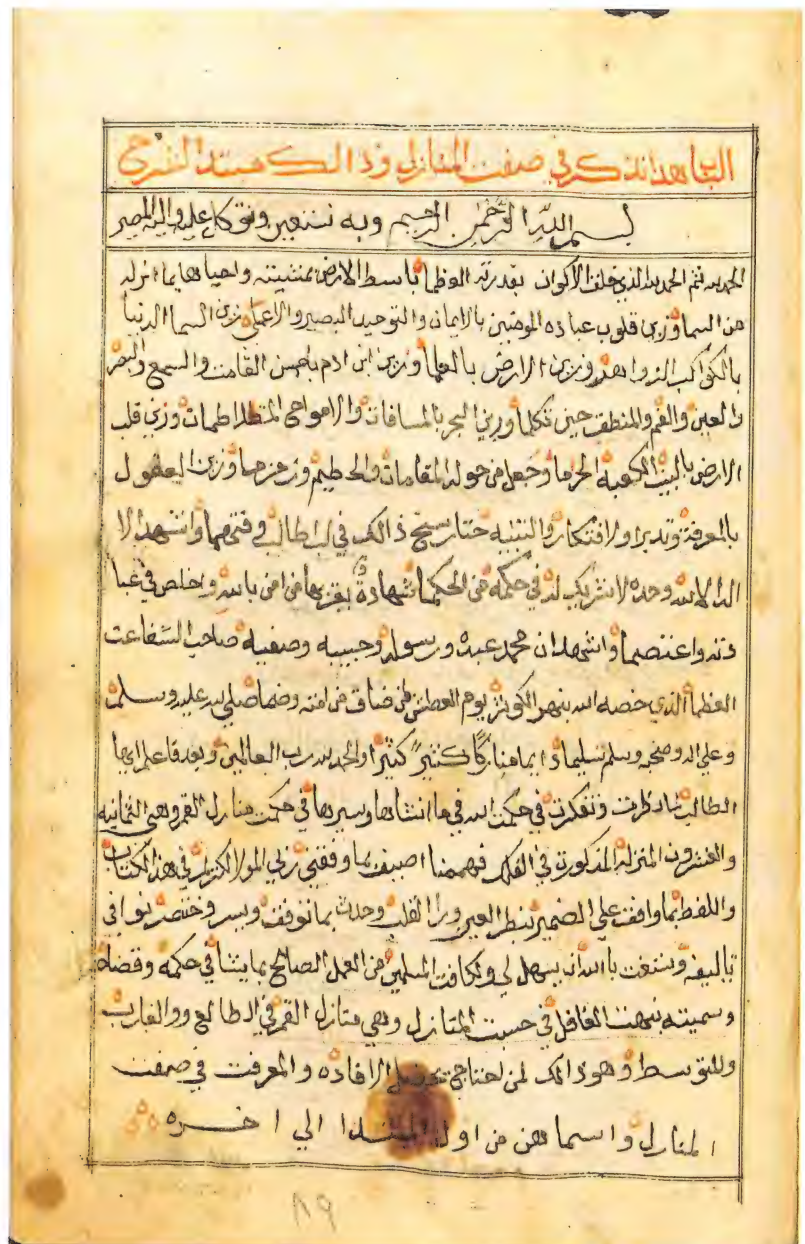 الباب هذا نذكر في صفت المنازل وذالك مبتدا الفرح
بسم الله الرحمن الرحيم وبه نستعين ونتوكل عليه واليه المصير
الحمد لله ثم الحمد لله الذي خلق الاكوان بقدرته العظما باسط الارض بمشيته واحياها بما انزله
من السما وزين قلوب عباده المومنين بالايمان والتوحيد البصير والاعما وزين السما الدنيا
بالكواكب الزواهر وزين الارض بالعلما وزين ابن ادم باحسن القامت والسمع والبصر
والعين والفم والمنطق حين تكلما وزين البحر بالمسافات والامواج المتطلاطمات وزين قلب
الارض بالبيت الكعبة الحرما وجعل من حوله المقامات والحطيم وزمزما وزين العقول
بالمعرفة وتدبرا ولافتكار والتنبيه حتا رسخ ذالك في لب طالب وفتى فهما واشهد الا
اله الا الله وحده لا شريك له في حكمه من الحكما شهادة يقر بها من امن بالله واخلص في عبا
دته واعتصما واشهد ان محمد عبده ورسوله وحبيبه وصفيه صاحب الشفاعت
العظما الذي خصه الله بنهر الكوثر يوم العطش لمن ضاق من امته وضما صلي الله عليه وسلم
وعلي اله وصحبه وسلم تسليما دايما مباركا كثير كثيرا والحمد لله رب العالمين وبعد فاعلم ايها
الطالب نظرت وتفكرت في حكمت الله في ما انشاها وسيرها في حكمت منازل القمر وهي الثمانيه
والعشرون المنزله المذكورت في الفلك فهممنا اصنف بما وفقني ربي المولا الكريم في هذا الكتاب
واللفظ بما وافق علي الضمير بنظر العين ورا القلب وحدث بما توفقت ويسر وختصر بوافي
تاليفه ونستعن باالله ان يسهل لي ولكافت المسلمين من العمل الصالح بما يشا في حكمه وقضاه
وسميته تنبهت الغافل في حسبت المنازل وهي منازل القمر في الطالع ووالغارب
وللتوسط وهوذالك لمن احتاج الافاده والمعرفت في صفت
المنازل واسماهن من اول المبتدا الي اخره
٨٩